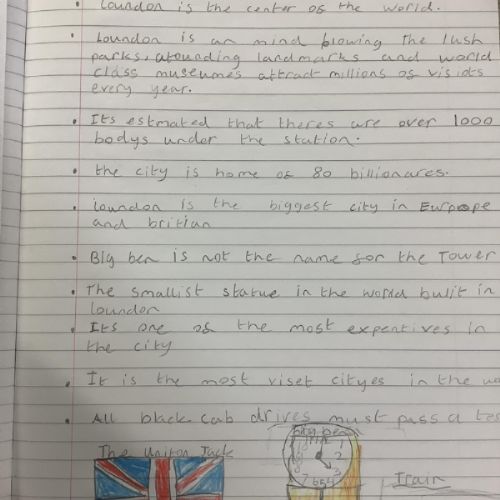 Loundon is the center of the world.
Loundon is an mind blowing the lush
parks, atounding landmarks and world
class museumes attract millions of visiots
every year.
Its estmated that theres are over 1000
bodys under the station.
the city is home of 80 billionares.
Loundon is the biggest city in Eurpope
and britian
Big ben is not the name for the Tower
The smallist statue in the world bulit in
loundon
Its one of the most expentives in
the city
It is the most viset cityes in the
All black cab drives must pass a
The Uniton Jack
big ben
1
2
3
Train